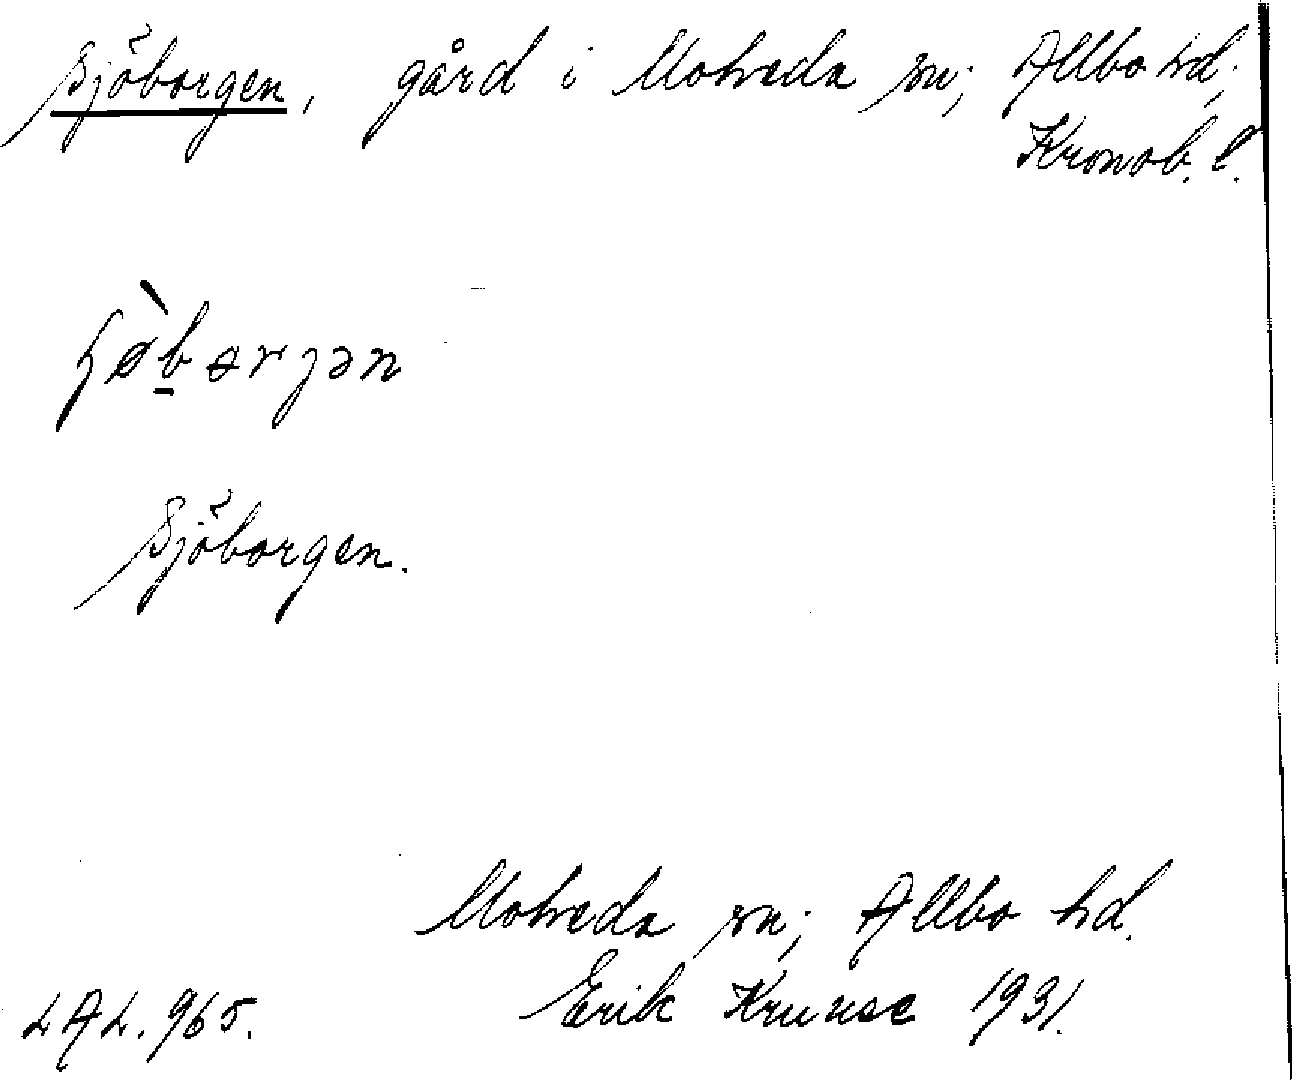 Sjöborgen, gård i Moheda sn; Allbo hd;
Kronob. l.
Sjöborgen.
Moheda sn; Allbo hd.
Erik Kruuse 1931.
LAL. 965.